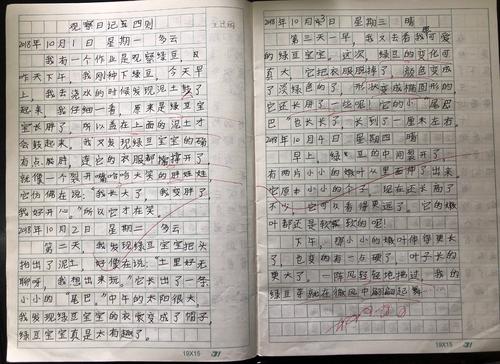 观察日记四则
2018年10月1日 星期一 多云
我有一个作业是观察绿豆,且
昨天下午,我刚种下绿豆,今天早
上,我去浇水的时候发现泥土鼓了
起来,我仔细一看,原来是绿豆宝
宝长胖了,所以盖在上面的泥土才
会鼓起来。我又发现绿豆宝宝的确
有点胖胖,连它的衣服都撑开了
就像一个裂开嘴哈大笑的胖娃娃,
它仿佛在说:“我长大了,我变胖了,
我好开心。”所以它才在笑。
2018年10月2日 星期二 多云
第二天,我发现绿豆宝宝把头
抬出了泥土,好像在说:“土里好无
聊呀,我想出来玩。”它长出了一条
小小的“尾巴”,中午的太阳很大,
我发现绿豆宝宝的衣裳变成了帽子,
绿豆宝宝真是太有趣了。
2018年10月3日 星期三 晴
第三天一早,我又去看我可爱
的绿豆宝宝。这次,绿豆的变化可
真大,它把衣服脱掉了,颜色变成
了淡绿色的了,形状变成椭圆形的,
它还长胖了一些呢!它的小“尾
巴”也长长了,长到了一厘米左右。
2018年10月4日 星期四 晴
早上,绿豆的中间裂开了,
有两片小小的嫩叶从里面伸了出来,
它原本小小的个子,现在还长高了
不少,它可以看得更远了。它的嫩
叶都还是软软的呢!
下午,绿小小的嫩叶伸得更大
了,也变的有一点硬了,叶子长的
更大了,一阵风轻轻地拂过,我的
绿豆芽就在微风中翩翩起舞。
19X15
19X15